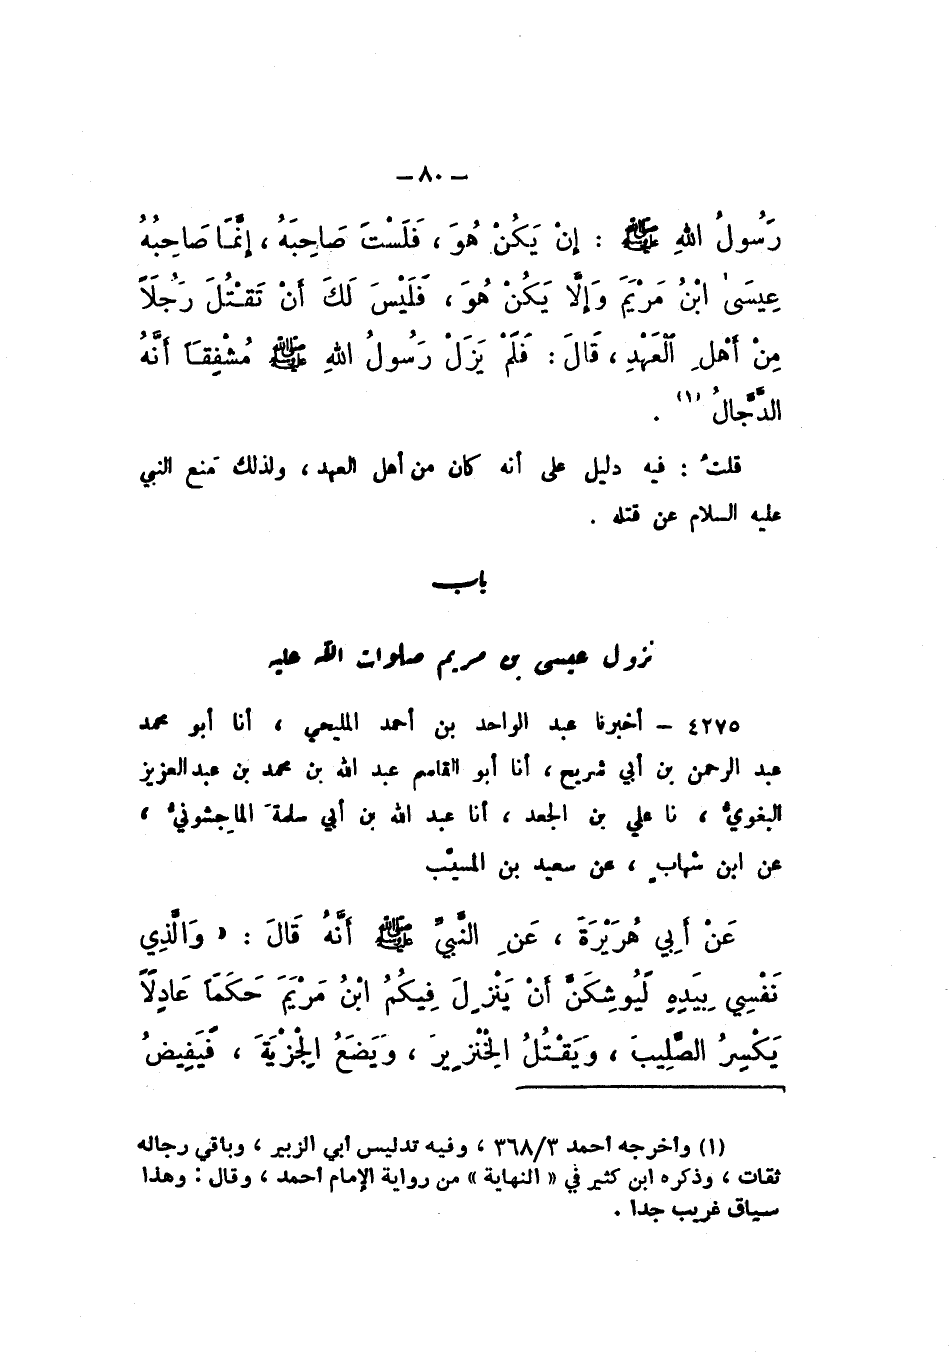 - ٨٠ -
رَسُولُ اللهِ ﷺ : إِنْ يَكُنْ هُوَ ، فَلَسْتَ صَاحِبَهُ ، إِنَّمَا صَاحِبُهُ
عِيسَىٰ ابْنُ مَرْيَمَ وَإِلَّا يَكُنْ هُوَ ، فَلَيْسَ لَكَ أَنْ تَقْتُلَ رَجُلًا
مِنْ أَهْلِ الْعَهْدِ ، قَالَ : فَلَمْ يَزَلْ رَسُولُ اللهِ ﷺ مُشْفِقًا أَنَّهُ
الدَّجَّالُ (١) .
قلتُ : فيه دليل على أنه كان من أهل العهد ، ولذلك مَنع النبي
عليه السلام عن قتله .
باب
نزول عيسى بن مريم صلوات الله عليه
٤٢٧٥ - أخبرنا عبد الواحد بن أحمد المليحي ، أنا أبو محمد
عبد الرحمن بن أبي شريح ، أنا أبو القاسم عبد الله بن محمد بن عبد العزيز
البغويُّ ، نا علي بن الجعد ، أنا عبد الله بن أبي سلمةَ الماجشونيُّ ،
عن ابن شهابٍ ، عن سعيد بن المسيَّب
عَنْ أَبِي هُرَيْرَةَ ، عَنِ النَّبِيِّ ﷺ أَنَّهُ قَالَ : « وَالَّذِي
نَفْسِي بِيَدِهِ لَيُوشِكَنَّ أَنْ يَنْزِلَ فِيكُمُ ابْنُ مَرْيَمَ حَكَمًا عَادِلًا
يَكْسِرُ الصَّلِيبَ ، وَيَقْتُلُ الْخِنْزِيرَ ، وَيَضَعُ الْجِزْيَةَ ، فَيَفِيضُ
(١) وأخرجه أحمد ٣٦٨/٣ ، وفيه تدليس أبي الزبير ، وباقي رجاله
ثقات ، وذكره ابن كثير في « النهاية » من رواية الإمام أحمد ، وقال : وهذا
سياق غريب جدا .